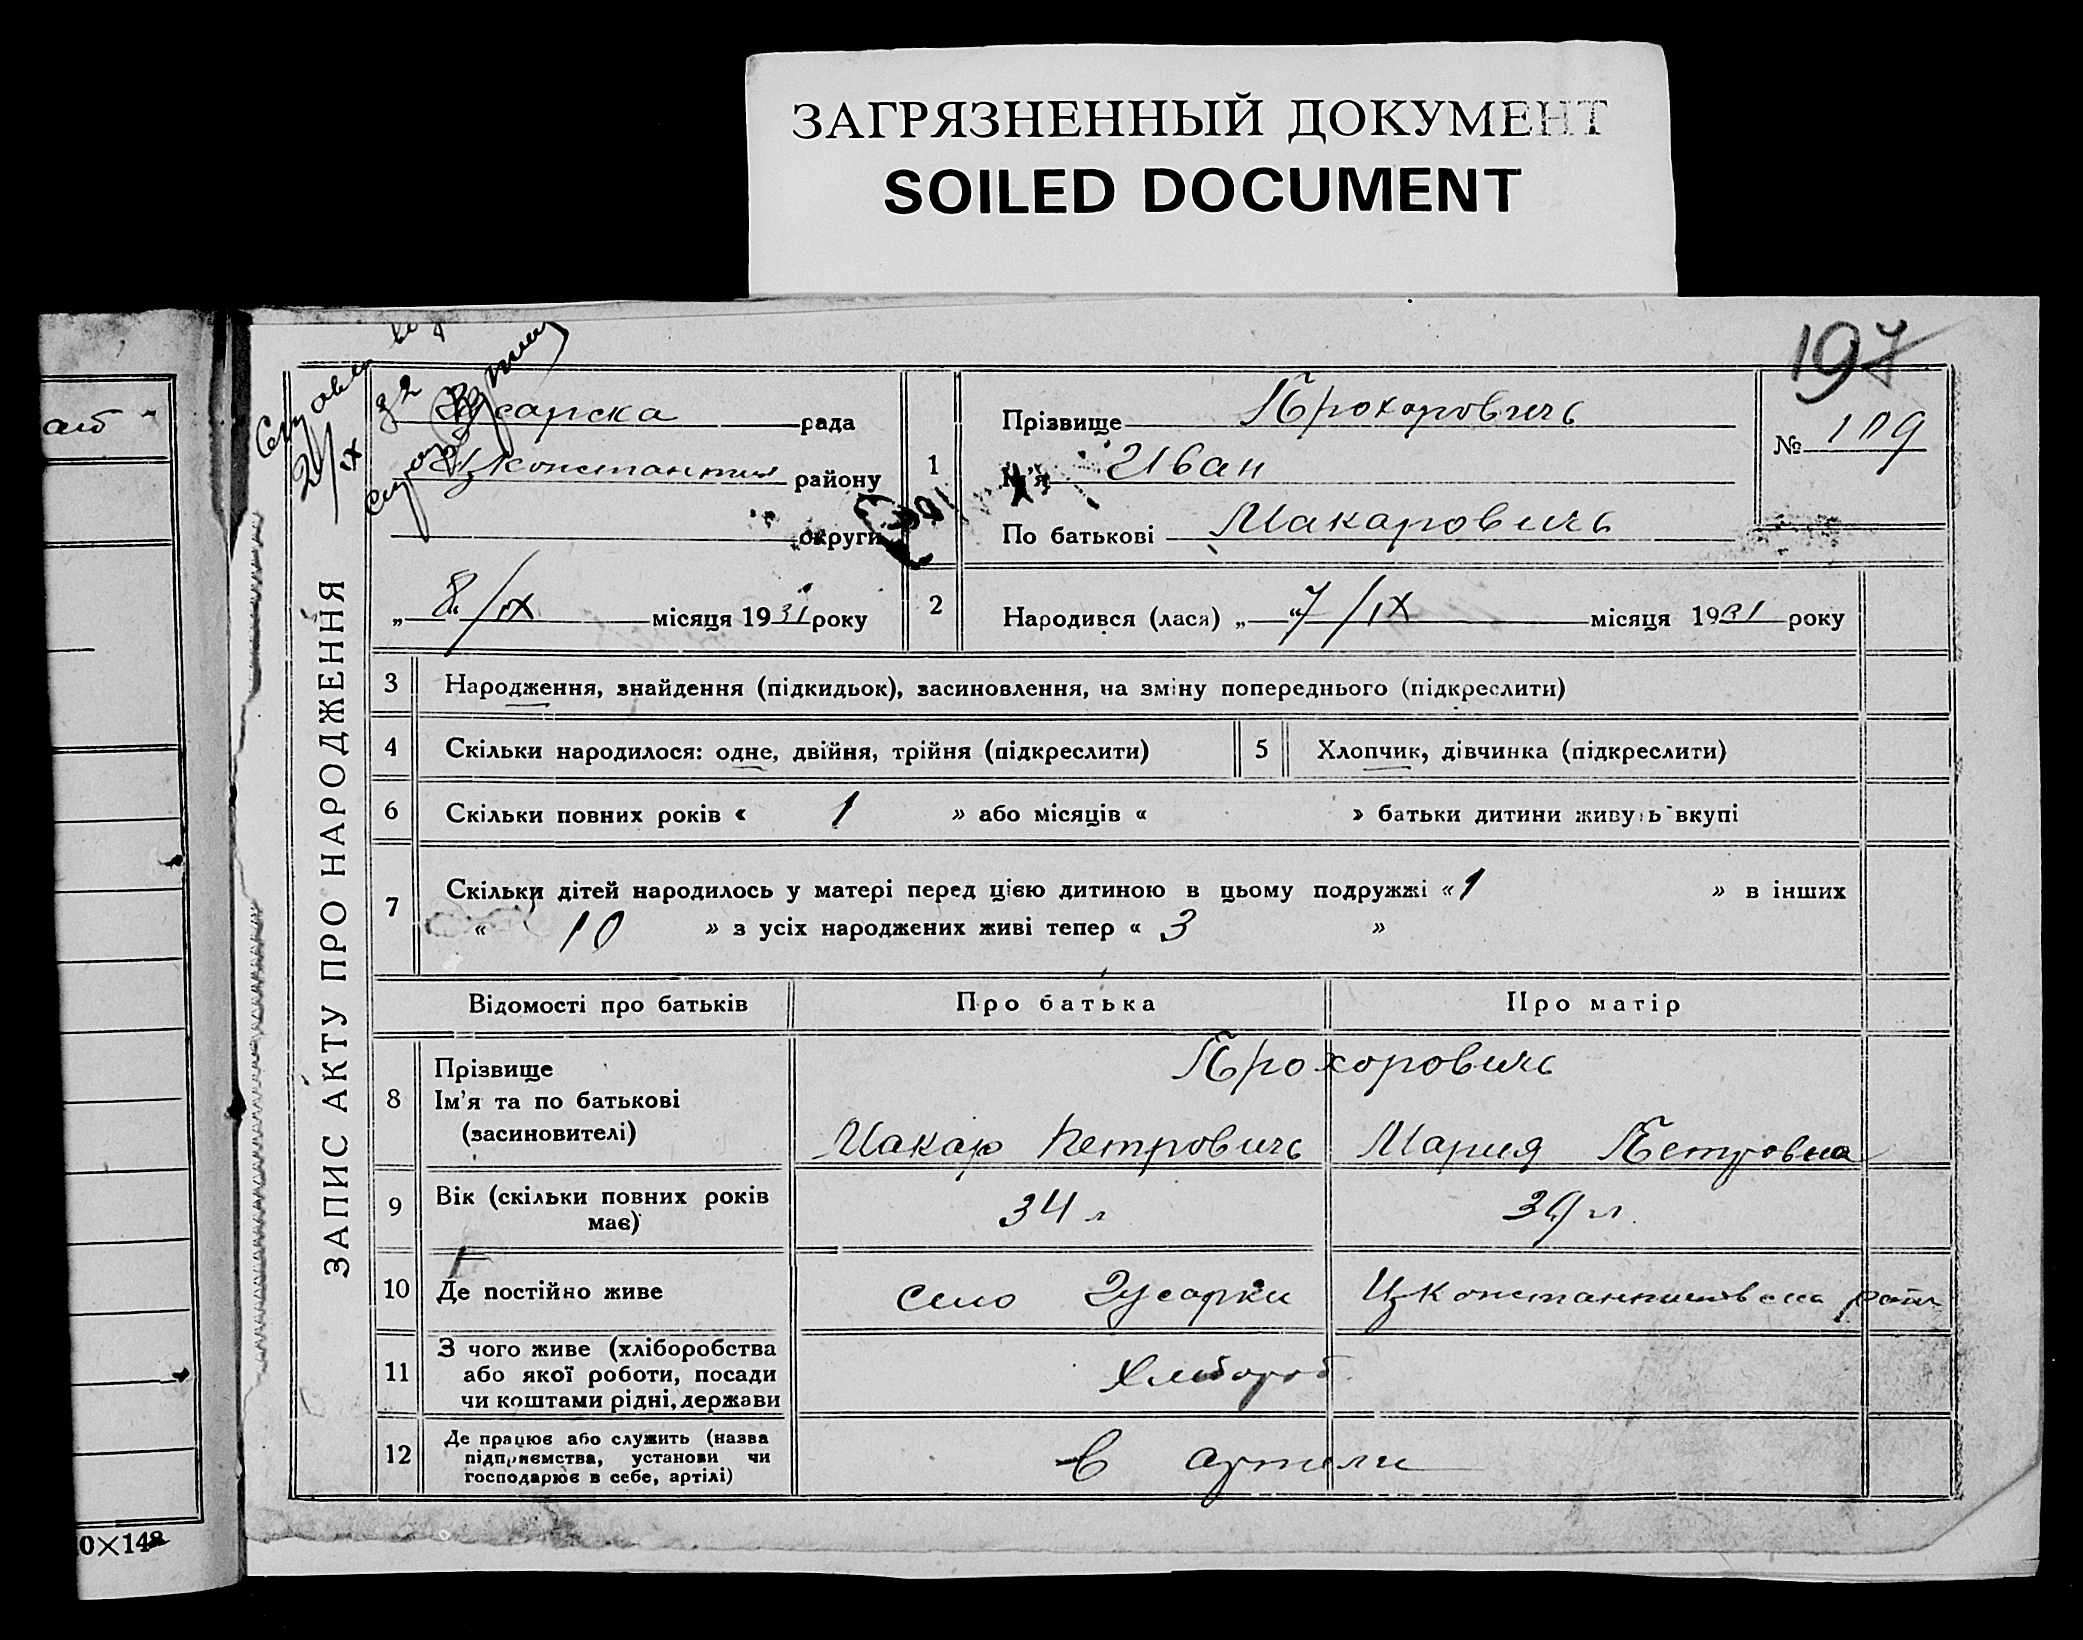 ЗАГРЯЗНЕННЫЙ ДОКУМЕНТ
SOILED DOCUMENT
197
ЗАПИС АКТУ ПРО НАРОДЖЕННЯ
Гусарска рада
Цконстантин району
округи
„ 8 /IX місяця 1931 року
1
Прізвище Прохоровичь
Ім'я Иван
По батькові Макаровичь
№ 109
2
Народився (лася) „ 7 /IX місяця 1931 року
3 Народження, знайдення (підкидьок), засиновлення, на зміну попереднього (підкреслити)
4 Скільки народилося: одне, двійня, трійня (підкреслити) 5 Хлопчик, дівчинка (підкреслити)
6 Скільки повних років « 1 » або місяців « » батьки дитини живуть вкупі
7 Скільки дітей народилось у матері перед цією дитиною в цьому подружжі « 1 » в інших
« 10 » з усіх народжених живі тепер « 3 »
Відомості про батьків Про батька Про матір
8 Прізвище
Ім'я та по батькові
(засиновителі)
Прохоровичь
Макар Петровичь Мария Петровна
9 Вік (скільки повних років
має)
34 л 39 л.
10 Де постійно живе село Гусарки Цконстантиновска
11 З чого живе (хліборобства
або якої роботи, посади
чи коштами рідні, держави
Хлибороб
12 Де працює або служить (назва
підприємства, установи чи
господарює в себе, артілі)
в артели
0×148